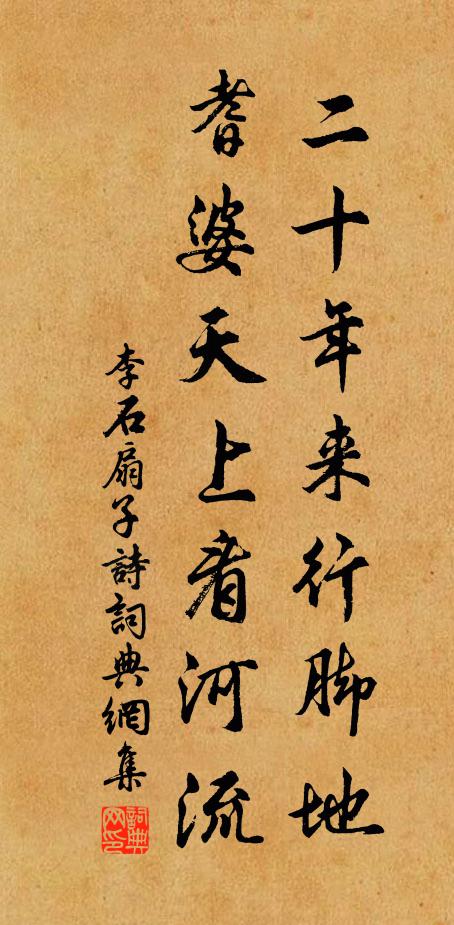 二十年来行脚地
耆婆天上看河流
李石扇子詩詞典網集
詞典网印